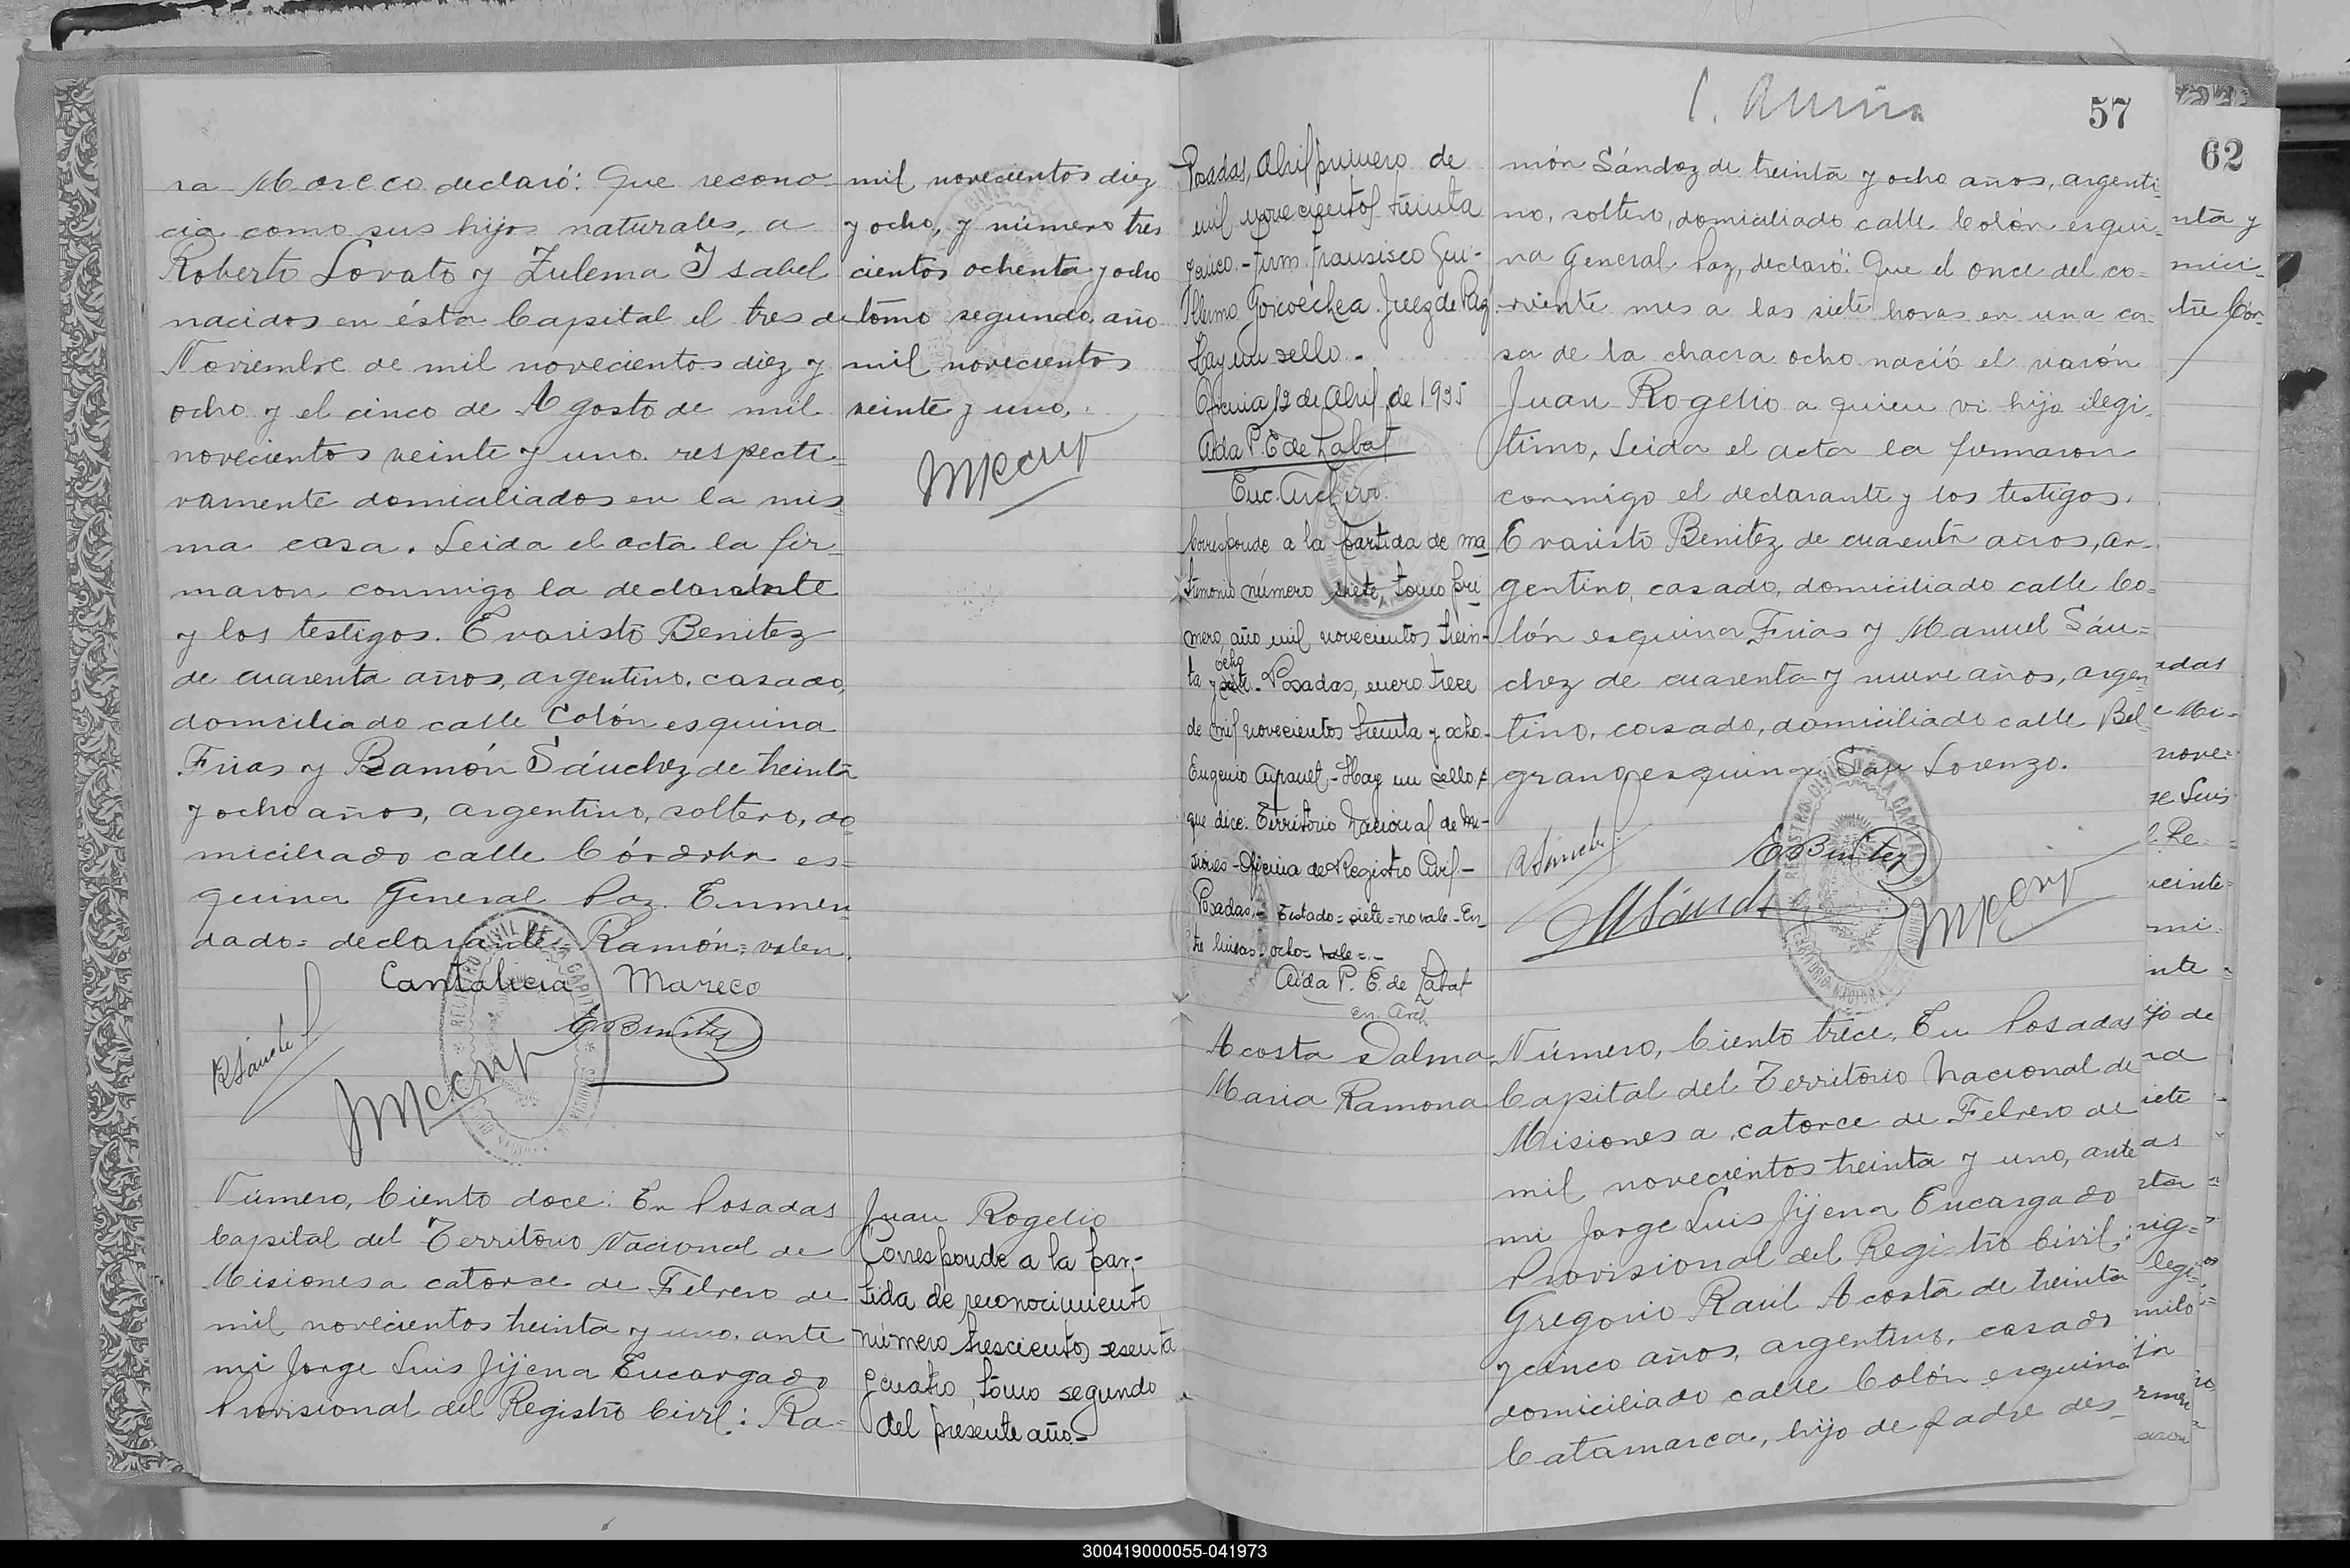 ra Mareco declaró: Que recono-
cia como sus hijos naturales, a
Roberto Lovato y Zulema Isabel
nacidos en ésta Capital el tres de
Noviembre de mil novecientos diez y
ocho y el cinco de Agosto de mil
novecientos veinte y uno respecti-
vamente domiciliados en la mis-
ma casa. Leida el acta la fir-
maron conmigo la declarante
y los testigos. Evaristo Benitez
de cuarenta años, argentino, casado,
domiciliado calle Colón esquina
Frias y Ramón Sánchez de treinta
y ocho años, argentino, soltero, do-
miciliado calle Córdoba es-
quina General Paz. Enmen-
dado= declarante= Ramón= valen.
Cantalicia Mareco
EBenitez
RSánchez
mil novecientos diez
y ocho, y número tres
cientos ochenta y ocho
tomo segundo, año
mil novecientos
veinte y uno.
Número, Ciento doce: En Posadas
Capital del Territorio Nacional de
Misiones a catorce de Febrero de
mil novecientos treinta y uno, ante
mi Jorge Luis Jijena Encargado
Provisional del Registro Civil: Ra-
Juan Rogelio
Corresponde a la par-
tida de reconocimiento
número trescientos sesenta
y cuatro, tomo segundo
del presente año.-
Posadas, Abril primero de
mil novecientos treinta
y cinco.- Firm. Francisco Gui-
llermo Goicoechea. Juez de Paz
Hay un sello.-
Oficina 12 de Abril de 1935
Aida P. E de Labat
Enc. Archivo.
Corresponde a la partida de ma-
trimonio número siete, tomo pri-
mero, año mil novecientos trein-
ocho
ta y siete.- Posadas, enero trece
de mil novecientos treinta y ocho.-
Eugenio .- Hay un sello
que dice: Territorio Nacional de Mi-
siones - Oficina de Registro Civil -
Posadas.- Testado= siete= no vale.- En-
tre lineas= ocho= vale=.-
Aida P. E. de Labat
en. Arch
57
món Sándoz de treinta y ocho años, argenti-
no, soltero, domiciliado calle Colón esqui-
na General Paz, declaró: Que el once del co-
rriente mes a las siete horas en una ca-
sa de la chacra ocho nació el varón
Juan Rogelio a quien vi hijo ilegi-
timo, Leida el acta la firmaron
conmigo el declarante y los testigos.
Evaristo Benitez de cuarenta años, ar-
gentino, casado, domiciliado calle Co-
lón esquina Frias y Manuel Sán-
chez de cuarenta y nueve años, argen-
tino, casado, domiciliado calle Bel-
grano esquina San Lorenzo.
RSánchez
EBenitez
MSánch
Acosta Dalma
Maria Ramona
Número, Ciento trece, En Posadas
Capital del Territorio Nacional de
Misiones a catorce de Febrero de
mil novecientos treinta y uno, ante
mi Jorge Luis Jijena Encargado
Provisional del Registro Civil:
Gregorio Raúl Acosta de treinta
y cinco años, argentino, casado
domiciliado calle Colón esquina
Catamarca, hijo de padre des-
62
nta y
mici-
tre Cór-
300419000055-041973